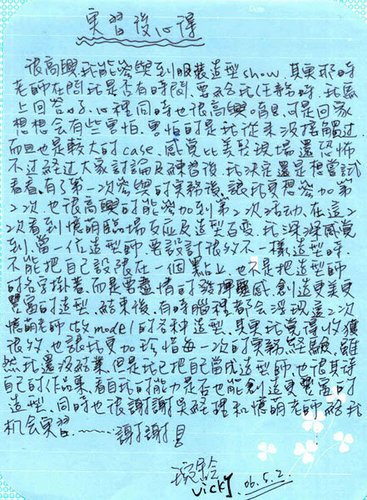 實習後心得
很高興我能參與到服裝造型show,其實那時
老師在問我是否有時間,要給我任務時,我馬
上回答好,心裡同時也很高興唷!可是回家
想想會有些害怕,害怕的是我從來沒接觸過,
而且也是較大的case,感覺比美髮現場還恐怖
不過經過大家討論及練習後,我決定還是想嘗試
看看,有了第一次參與的實務後,讓我更想參加第
2次,也很高興的能參加到第2次活動,在這2
次看到憶明臨場反應及造型百變,我深深感覺
到,當一位造型師,要設計很多不一樣造型時,
不能把自己設限在一個點上,也不是把造型師
的名字掛著,而是要盡情的發揮靈感,創造更美更
豐富的造型,結束後,有時腦裡都會浮現這2次
憶明老師做model的各種造型,其實我覺得收獲
很多,也讓我更加珍惜每一次的實務經驗,雖
然我還沒結業,但是我已把自己當成造型師,也很期待
自己的作品集,看自我的能力是否也能創造更豐富的
造型,同時也很謝謝吳經理和憶明老師給我
机会實習~~~~謝謝
Vicky 06.5.2.